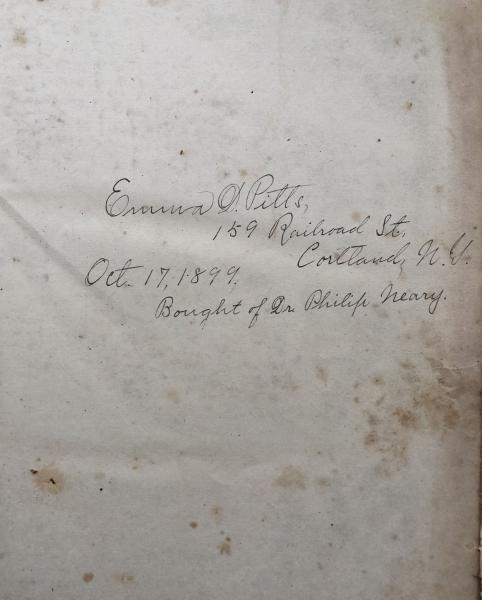 Emma D. Pitts,
159 Railroad St.
Cortland, N.Y.
Oct. 17, 1899.
Bought of Dr. Philip Neary.